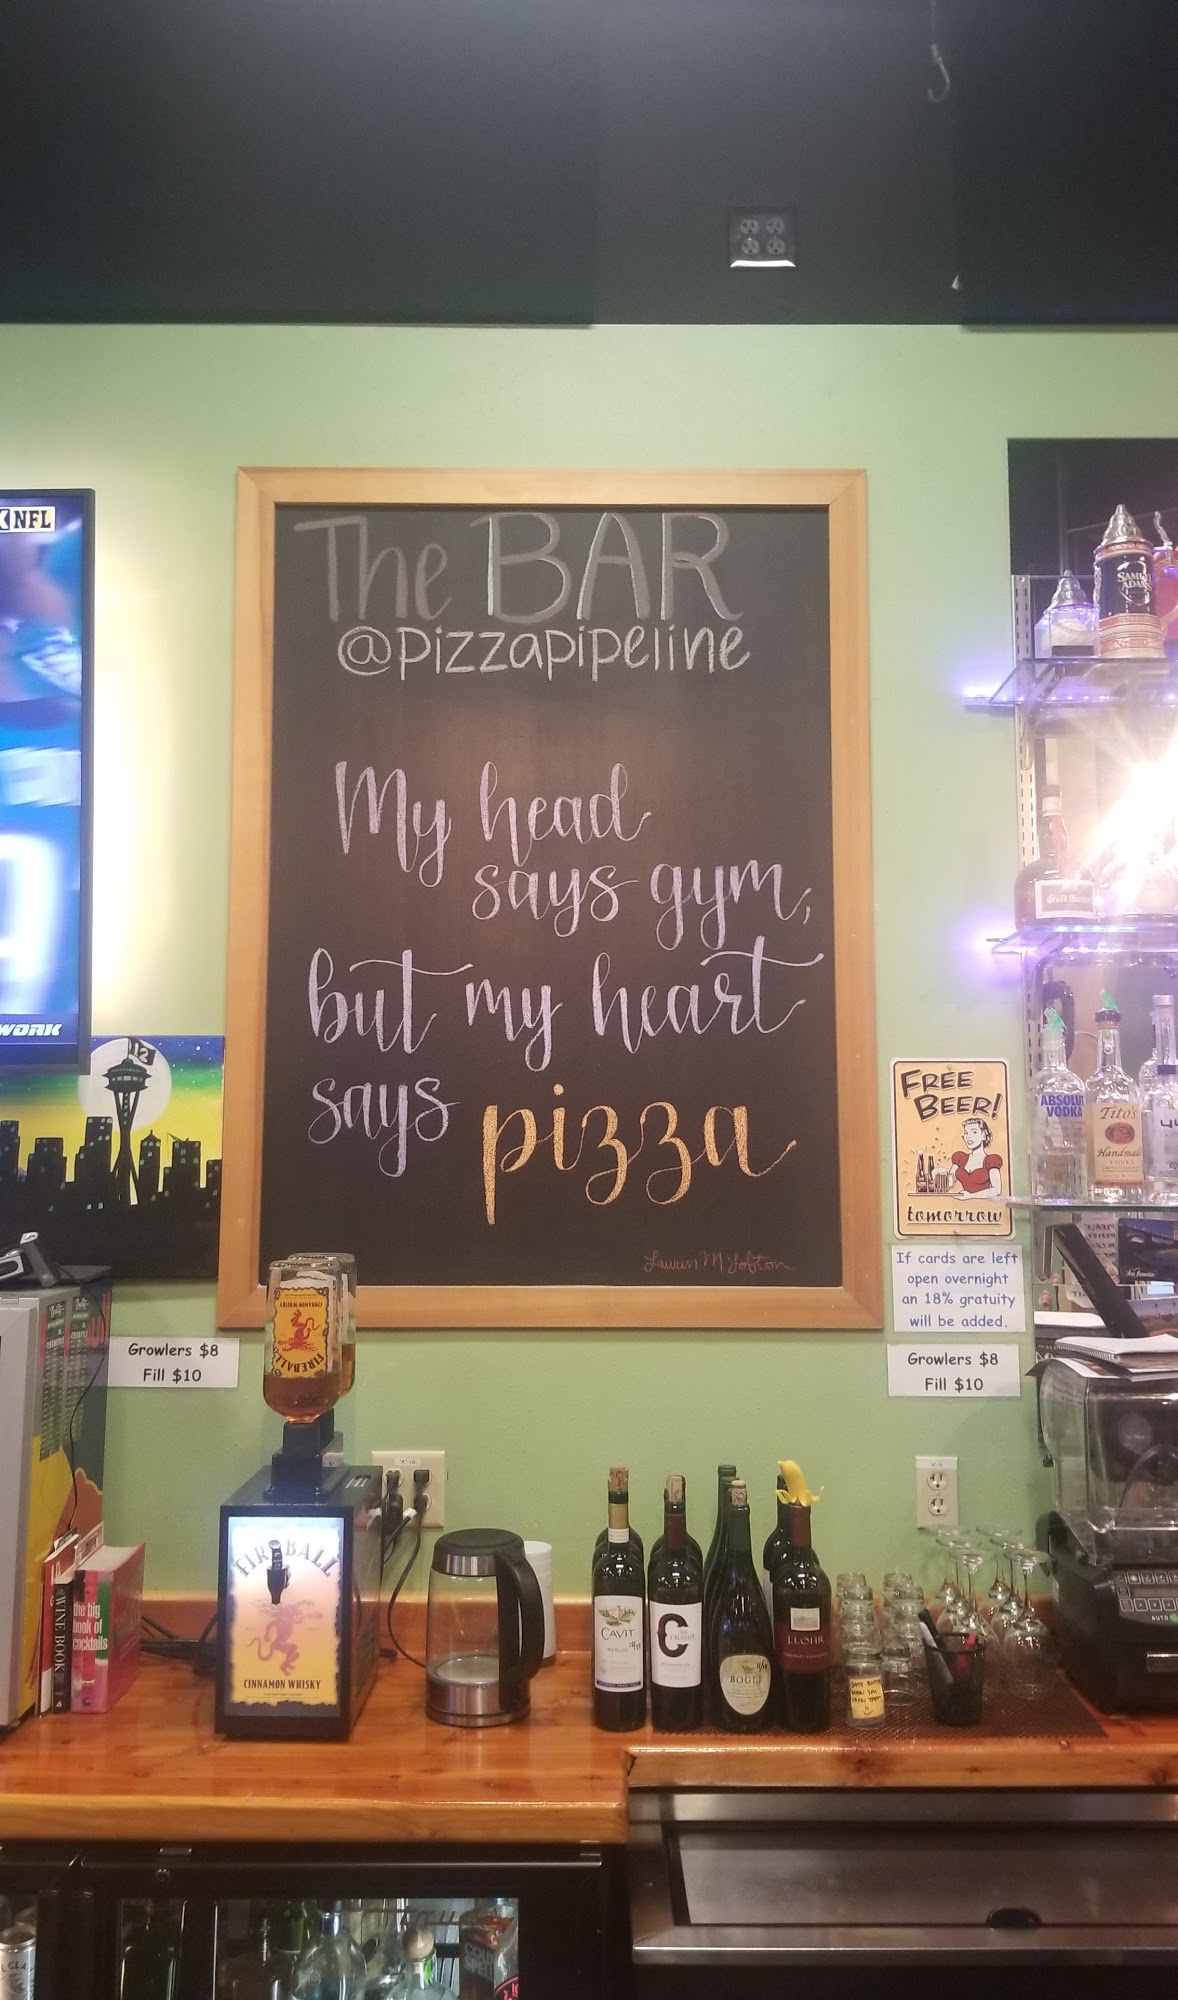 The BAR
@pizzapipeline
My head
says gym,
but my heart
says pizza
Lauren M Lofton
NFL
WORK
12
SAMUEL
ADAMS
Grand Marnier
ABSOLUT
VODKA
Tito's
Handmade
VODKA
FREE
BEER!
tomorrow
If cards are left
open overnight
an 18% gratuity
will be added.
Growlers $8
Fill $10
Growlers $8
Fill $10
CINNAMON WHISKY
FIREBALL
FIREBALL
CINNAMON WHISKY
WINE BOOK
the big
book of
cocktails
CAVIT
MERLOT
C
BOGLE
J. LOHR
AUTO